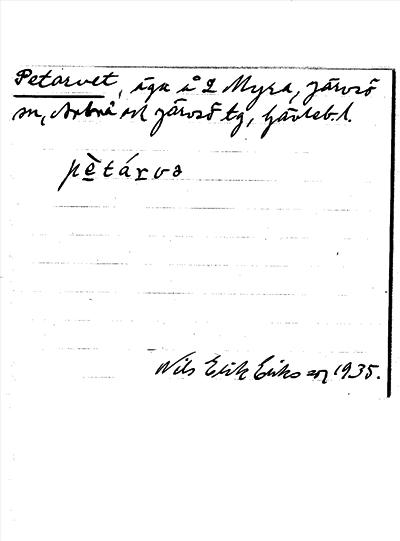 Petarvet, äga å 2 Myra, Järvsö
sn, Arbrå och Järvsö tg, Gävleb. l.
pètárvə
Nils Erik Eriksson 1935.